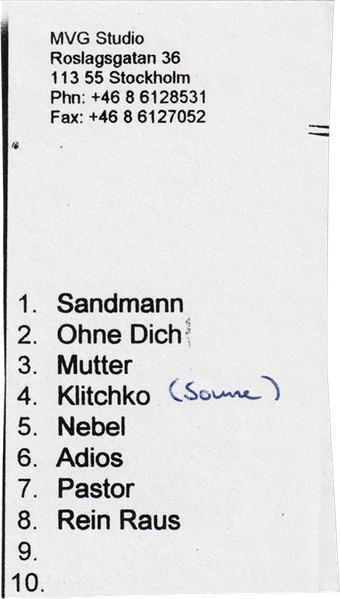 MVG Studio
Roslagsgatan 36
113 55 Stockholm
Phn: +46 8 6128531
Fax: +46 8 6127052
1. Sandmann
2. Ohne Dich
3. Mutter
4. Klitchko (Sonne)
5. Nebel
6. Adios
7. Pastor
8. Rein Raus
9.
10.